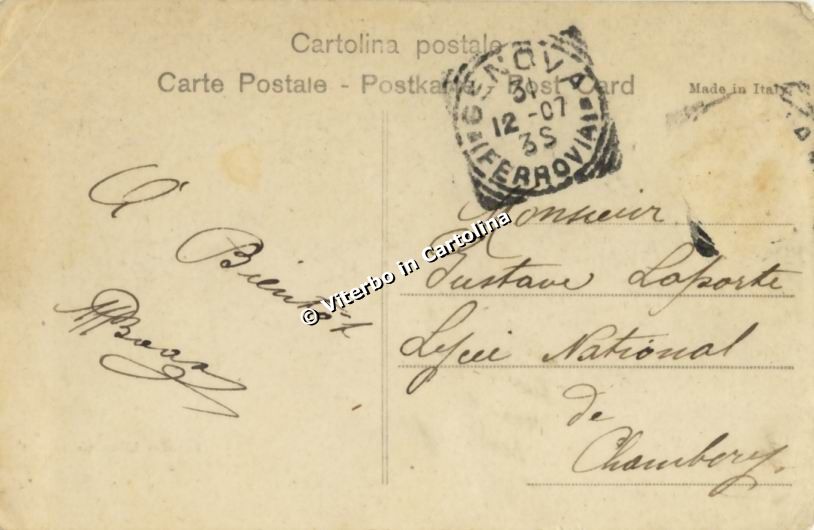 Cartolina postale
Carte Postale - Postkarte - Post Card
Made in Italy
GENOVA
31
12 -07
3S
(FERROVIA)
A
Bientôt
Monsieur
Gustave Laporte
Lycée National
de
Chambery.
© Viterbo in Cartolina